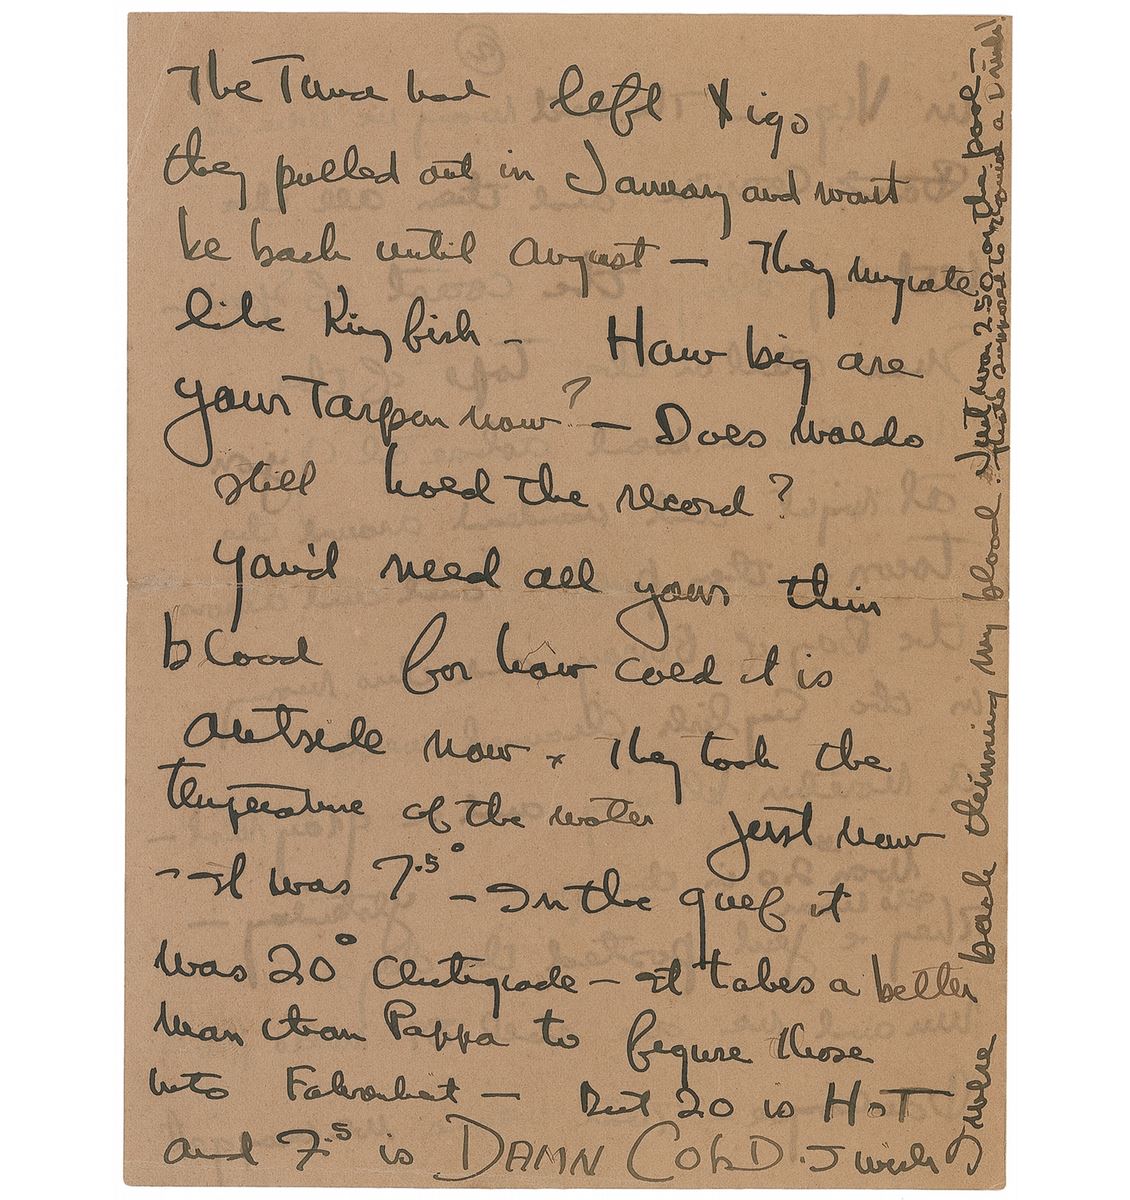 The Tuna had left Vigo
they pulled out in January and wont
be back until August — They migrate
like Kingfish — How big are
your Tarpon now? — Does Waldo
still hold the record?
You'd need all your thin
blood for how cold it is
outside now. They took the
temperature of the water just now
— It was 7.5° — In the gulf it
was 20° Centigrade — It takes a better
man than Pappa to figure those
into Fahrenheit — But 20 is HOT
and 7.5 is DAMN COLD. I wish
I were back thinning my blood. Just won 250 on the pool —
supposed to a Drink!